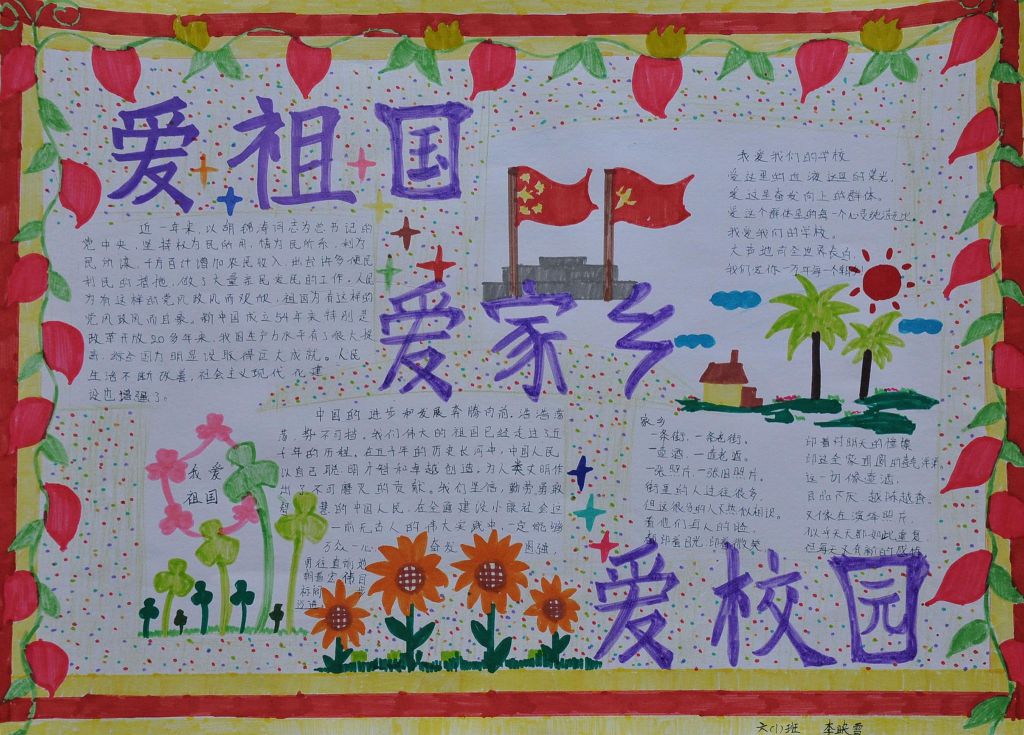 爱祖国
近一年来，以胡锦涛同志为总书记的
党中央，坚持权为民所用，情为民所系，利为
民所谋，千方百计增加农民收入，出台许多便民
利民的措施，做了大量亲民爱民的工作，人民
为有这样的党风政风而
祖国为有这样的
党风政风而自豪。新中国成立54年来特别是
改革开放20多年来，我国生产力水平有了很大提
高，综合国力明显
取得巨大成就。人民
生活不断改善，社会主义现代化建
设也增强了。
我爱我们的学校
爱这里的
爱这里奋发向上的群体。
爱这个群体里的每一个心灵
我爱我们的学校。
大声地向全世界
我们
爱家乡
中国的进步和发展奔腾向前，浩浩荡
荡，势不可挡，我们伟大的祖国已经走过了近
千年的历程，在五千年的历史长河中，中国人民
以自己聪明才智和卓越创造，为人类文明作
出了不可磨灭的贡献。我们坚信，勤劳勇敢
智慧的中国人民，在全面建设小康社会这
一前无古人的伟大实践中，一定能够
万众一心
奋发图强，
勇往直前
朝着宏伟目
标
我爱
祖国
家乡
一条街，一条老街。
一壶酒，一壶老酒。
一张照片，一张旧照片。
街里的人过往很多，
但这很多的人依然似相识。
看他们每人的脸，
都印着日光，印着微笑
印着对明天的憧憬
这一切像壶酒，
又像在演绎照片，
似乎天天都如此重复
但每天又有新的感悟
爱校园
六(1)班 李映雪